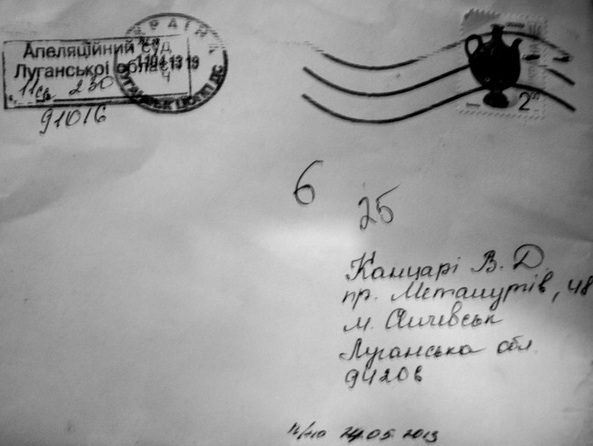 УКРАЇНА
Апеляційний суд
Луганської області
11 04 13 19
230
91016
2
6
25
Канцарі В. Д
пр. Металургів, 48
м. Алчевськ
Луганська обл.
94206
24.05.2013